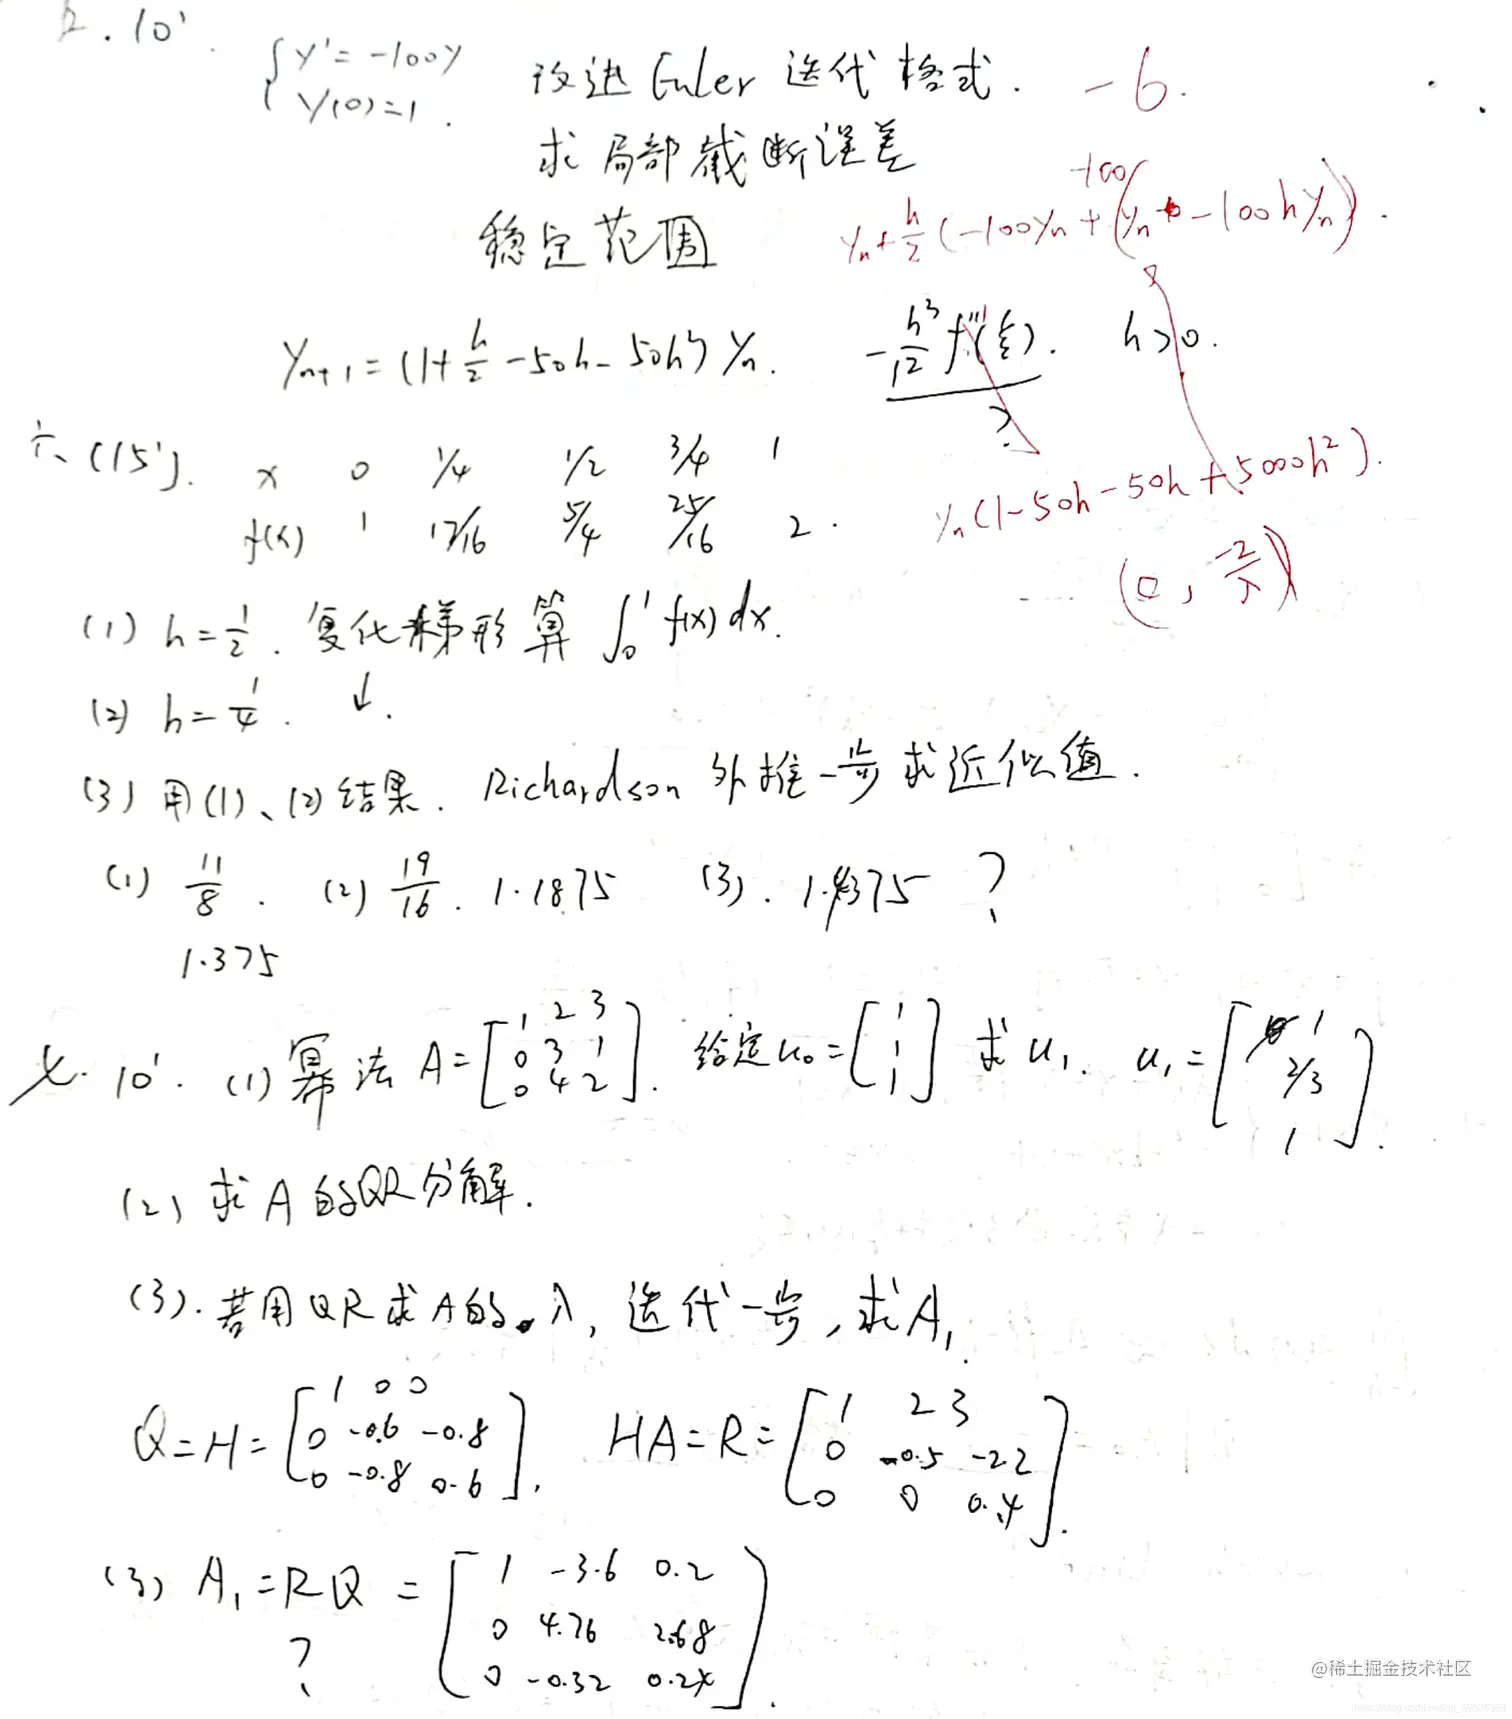 10'. { y' = -100y 改进Euler迭代格式. -6.
y(0)=1.
求局部截断误差
稳定范围 y_n + h/2 (-100y_n + -100(y_n - 100h y_n)).
y_{n+1} = (1 + h/2 - 50h - 50h²) y_n. -h³/12 f'''(ξ). h>0.
?
六、(15'). x 0 1/4 1/2 3/4 1
f(x) 1 17/16 5/4 25/16 2.
y_n(1-50h-50h+5000h²).
(0, -2/λ)
(1) h=1/2. 复化梯形算 ∫_0^1 f(x)dx.
(2) h=1/4. ↓.
(3) 用(1)、(2)结果. Richardson 外推一步求近似值.
(1) 11/8. (2) 19/16. 1.1875 (3). 1.4375 ?
1.375
七. 10'. (1) 幂法 A = [1 2 3; 0 3 1; 0 4 2]. 给定u_0 = [1; 1; 1] 求u_1. u_1 = [1; 2/3; 1].
(2) 求A的QR分解.
(3). 若用QR求A的λ, 迭代一步, 求A_1.
Q=H= [1 0 0; 0 -0.6 -0.8; 0 -0.8 0.6]. HA=R= [1 2 3; 0 -0.5 -2.2; 0 0 0.4].
(3) A_1=RQ = [1 -3.6 0.2; 0 4.76 2.68; 0 -0.32 0.24].
?
@稀土掘金技术社区